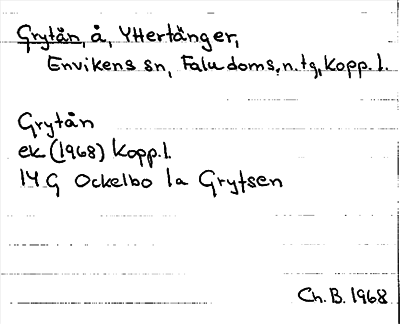 Grytån, å, Yttertänger,
Envikens sn, Falu doms. n. tg, Kopp. l.
Grytån
ek (1968) Kopp. l.
14 G Ockelbo 1a Grytsen
Ch. B. 1968